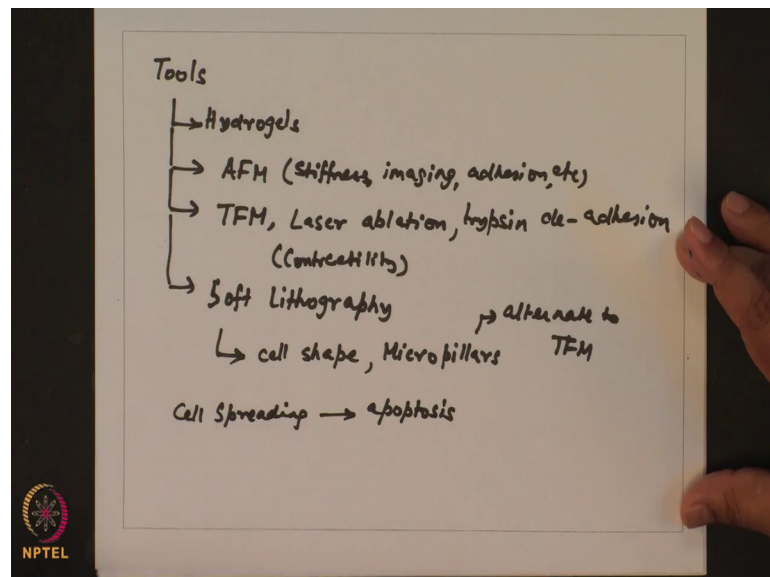 Tools
→ Hydrogels
→ AFM (Stiffness, imaging, adhesion, etc)
→ TFM, Laser ablation, trypsin de-adhesion
(Contractility)
→ Soft Lithography
→ cell shape, Micropillars → alternate to
TFM
Cell Spreading → apoptosis
NPTEL